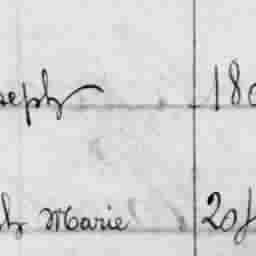 seph 180
h Marie 20 f